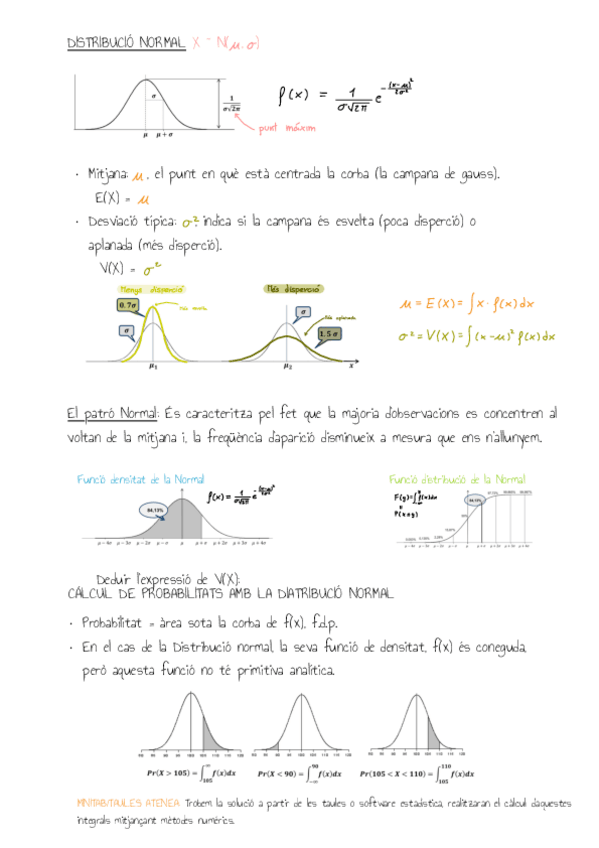 DISTRIBUCIÓ NORMAL X ~ N(μ, σ)
σ
μ μ+σ
1/(σ√2π)
punt màxim
f(x) = 1/(σ√2π) e^(-(x-μ)²/2σ²)
• Mitjana: μ, el punt en què està centrada la corba (la campana de gauss).
E(X) = μ
• Desviació típica: σ² indica si la campana és esvelta (poca disperció) o
aplanada (més disperció).
V(X) = σ²
Menys disperció
Més disperció
0.7σ
σ
σ
Més aplanada
1.5 σ
μ₁ μ₂ x
μ = E(X) = ∫ x · f(x) dx
σ² = V(X) = ∫ (x-μ)² f(x) dx
El patró Normal: És caracteritza pel fet que la majoria d'observacions es concentren al
voltan de la mitjana i, la freqüència d'aparició disminueix a mesura que ens n'allunyem.
Funció densitat de la Normal
Funció distribució de la Normal
84,13%
f(x) = 1/(σ√2π) e^(-(x-μ)²/2σ²)
μ-4σ μ-3σ μ-2σ μ-σ μ μ+σ μ+2σ μ+3σ μ+4σ
P(X≤y)
84,13%
μ-4σ μ-3σ μ-2σ μ-σ μ μ+σ μ+2σ μ+3σ μ+4σ
Deduir l'expressió de V(X):
CÀLCUL DE PROBABILITATS AMB LA DIATRIBUCIÓ NORMAL
• Probabilitat = àrea sota la corba de f(x), f.d.p.
• En el cas de la Distribució normal, la seva funció de densitat, f(x) és coneguda,
però aquesta funció no té primitiva analítica.
Pr(X > 105) = ∫₁₀₅^∞ f(x)dx
Pr(X < 90) = ∫₋∞^90 f(x)dx
Pr(105 < X < 110) = ∫₁₀₅^110 f(x)dx
MINITAB/TAULES ATENEA: Trobem la solució a partir de les taules o software estadística, realitzaran el càlcul d'aquestes
integrals mitjançant mètodes numèrics.